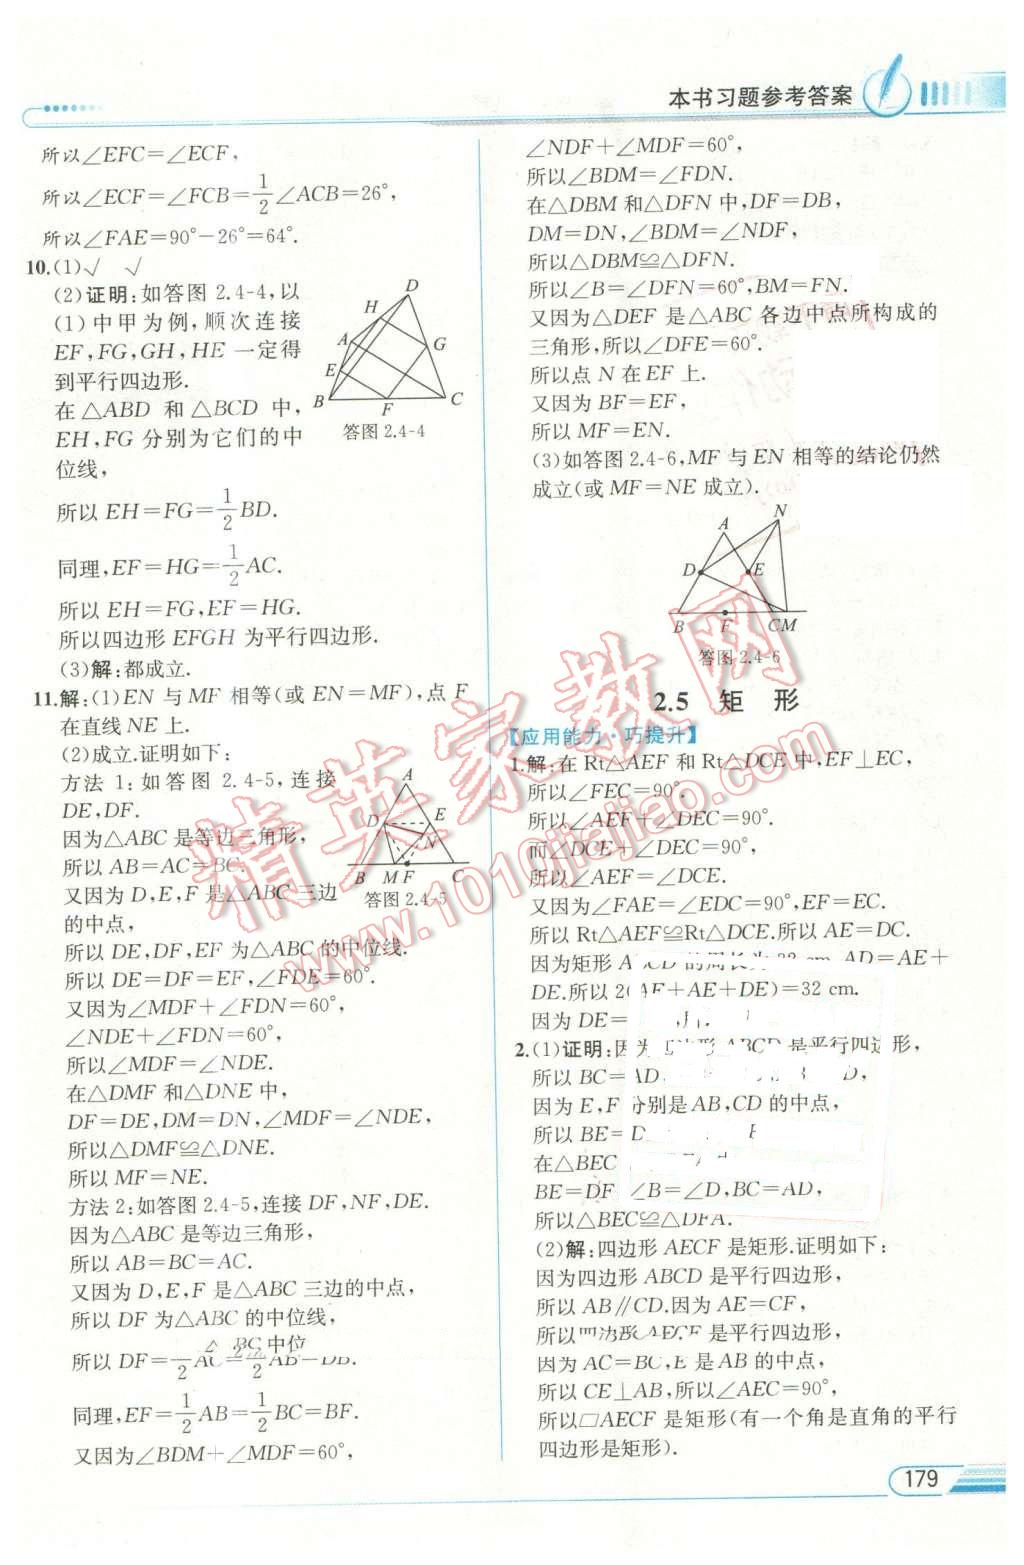 本书习题参考答案
所以∠EFC=∠ECF,
所以∠ECF=∠FCB=1/2∠ACB=26°,
所以∠FAE=90°-26°=64°.
10.(1)√ √
(2)证明:如答图 2.4-4,以
(1)中甲为例,顺次连接
EF,FG,GH,HE 一定得
到平行四边形.
在△ABD 和△BCD 中,
EH,FG 分别为它们的中
位线,
D
H
A
G
E
B
F
C
答图 2.4-4
所以 EH=FG=1/2BD.
同理,EF=HG=1/2AC.
所以 EH=FG,EF=HG.
所以四边形 EFGH 为平行四边形.
(3)解:都成立.
11.解:(1)EN 与 MF 相等(或 EN=MF),点 F
在直线 NE 上.
(2)成立.证明如下:
方法 1:如答图 2.4-5,连接
DE,DF.
因为△ABC 是等边三角形,
所以 AB=AC=BC.
又因为 D,E,F 是△ABC 三边
的中点,
A
D
E
N
B M F C
答图 2.4-5
所以 DE,DF,EF 为△ABC 的中位线.
所以 DE=DF=EF,∠FDE=60°.
又因为∠MDF+∠FDN=60°,
∠NDE+∠FDN=60°,
所以∠MDF=∠NDE.
在△DMF 和△DNE 中,
DF=DE,DM=DN,∠MDF=∠NDE,
所以△DMF≌△DNE.
所以 MF=NE.
方法 2:如答图 2.4-5,连接 DF,NF,DE.
因为△ABC 是等边三角形,
所以 AB=BC=AC.
又因为 D,E,F 是△ABC 三边的中点,
所以 DF 为△ABC 的中位线,
所以 DF=1/2AC=1/2AB=DB.
同理,EF=1/2AB=1/2BC=BF.
又因为∠BDM+∠MDF=60°,
∠NDF+∠MDF=60°,
所以∠BDM=∠FDN.
在△DBM 和△DFN 中,DF=DB,
DM=DN,∠BDM=∠NDF,
所以△DBM≌△DFN.
所以∠B=∠DFN=60°,BM=FN.
又因为△DEF 是△ABC 各边中点所构成的
三角形,所以∠DFE=60°.
所以点 N 在 EF 上.
又因为 BF=EF,
所以 MF=EN.
(3)如答图 2.4-6,MF 与 EN 相等的结论仍然
成立(或 MF=NE 成立).
N
A
D
E
B F CM
答图 2.4-6
2.5 矩 形
【应用能力·巧提升】
1.解:在 Rt△AEF 和 Rt△DCE 中,EF⊥EC,
所以∠FEC=90°.
所以∠AEF+∠DEC=90°.
而∠DCE+∠DEC=90°,
所以∠AEF=∠DCE.
又因为∠FAE=∠EDC=90°,EF=EC.
所以 Rt△AEF≌Rt△DCE.所以 AE=DC.
因为矩形 ABCD 的周长为 32 cm,AD=AE+
DE.所以 2(AE+AE+DE)=32 cm.
因为 DE=
2.(1)证明:因为四边形 ABCD 是平行四边形,
所以 BC=AD
因为 E,F 分别是 AB,CD 的中点,
所以 BE=
在△BEC
BE=DF ∠B=∠D,BC=AD,
所以△BEC≌△DFA.
(2)解:四边形 AECF 是矩形.证明如下:
因为四边形 ABCD 是平行四边形,
所以 AB∥CD.因为 AE=CF,
所以四边形 AECF 是平行四边形,
因为 AC=BC,E 是 AB 的中点,
所以 CE⊥AB,所以∠AEC=90°,
所以□AECF 是矩形(有一个角是直角的平行
四边形是矩形).
179
精英家教网
www.1010jiajiao.com